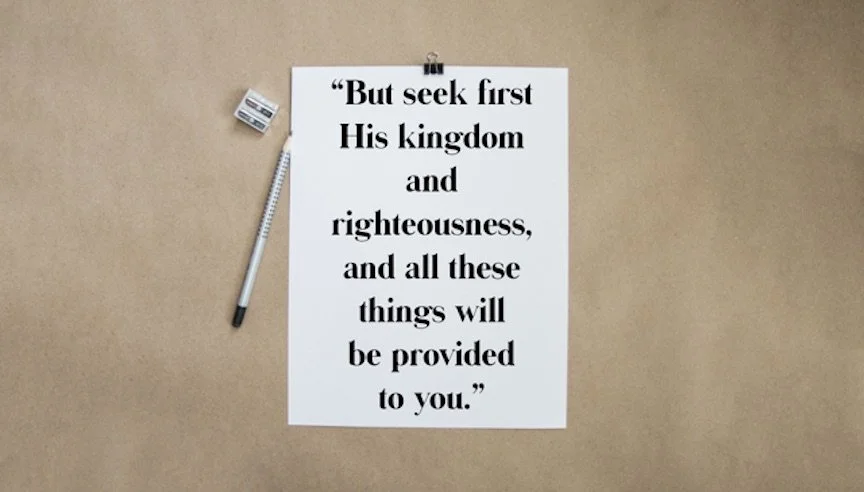 “But seek first
His kingdom
and
righteousness,
and all these
things will
be provided
to you.”